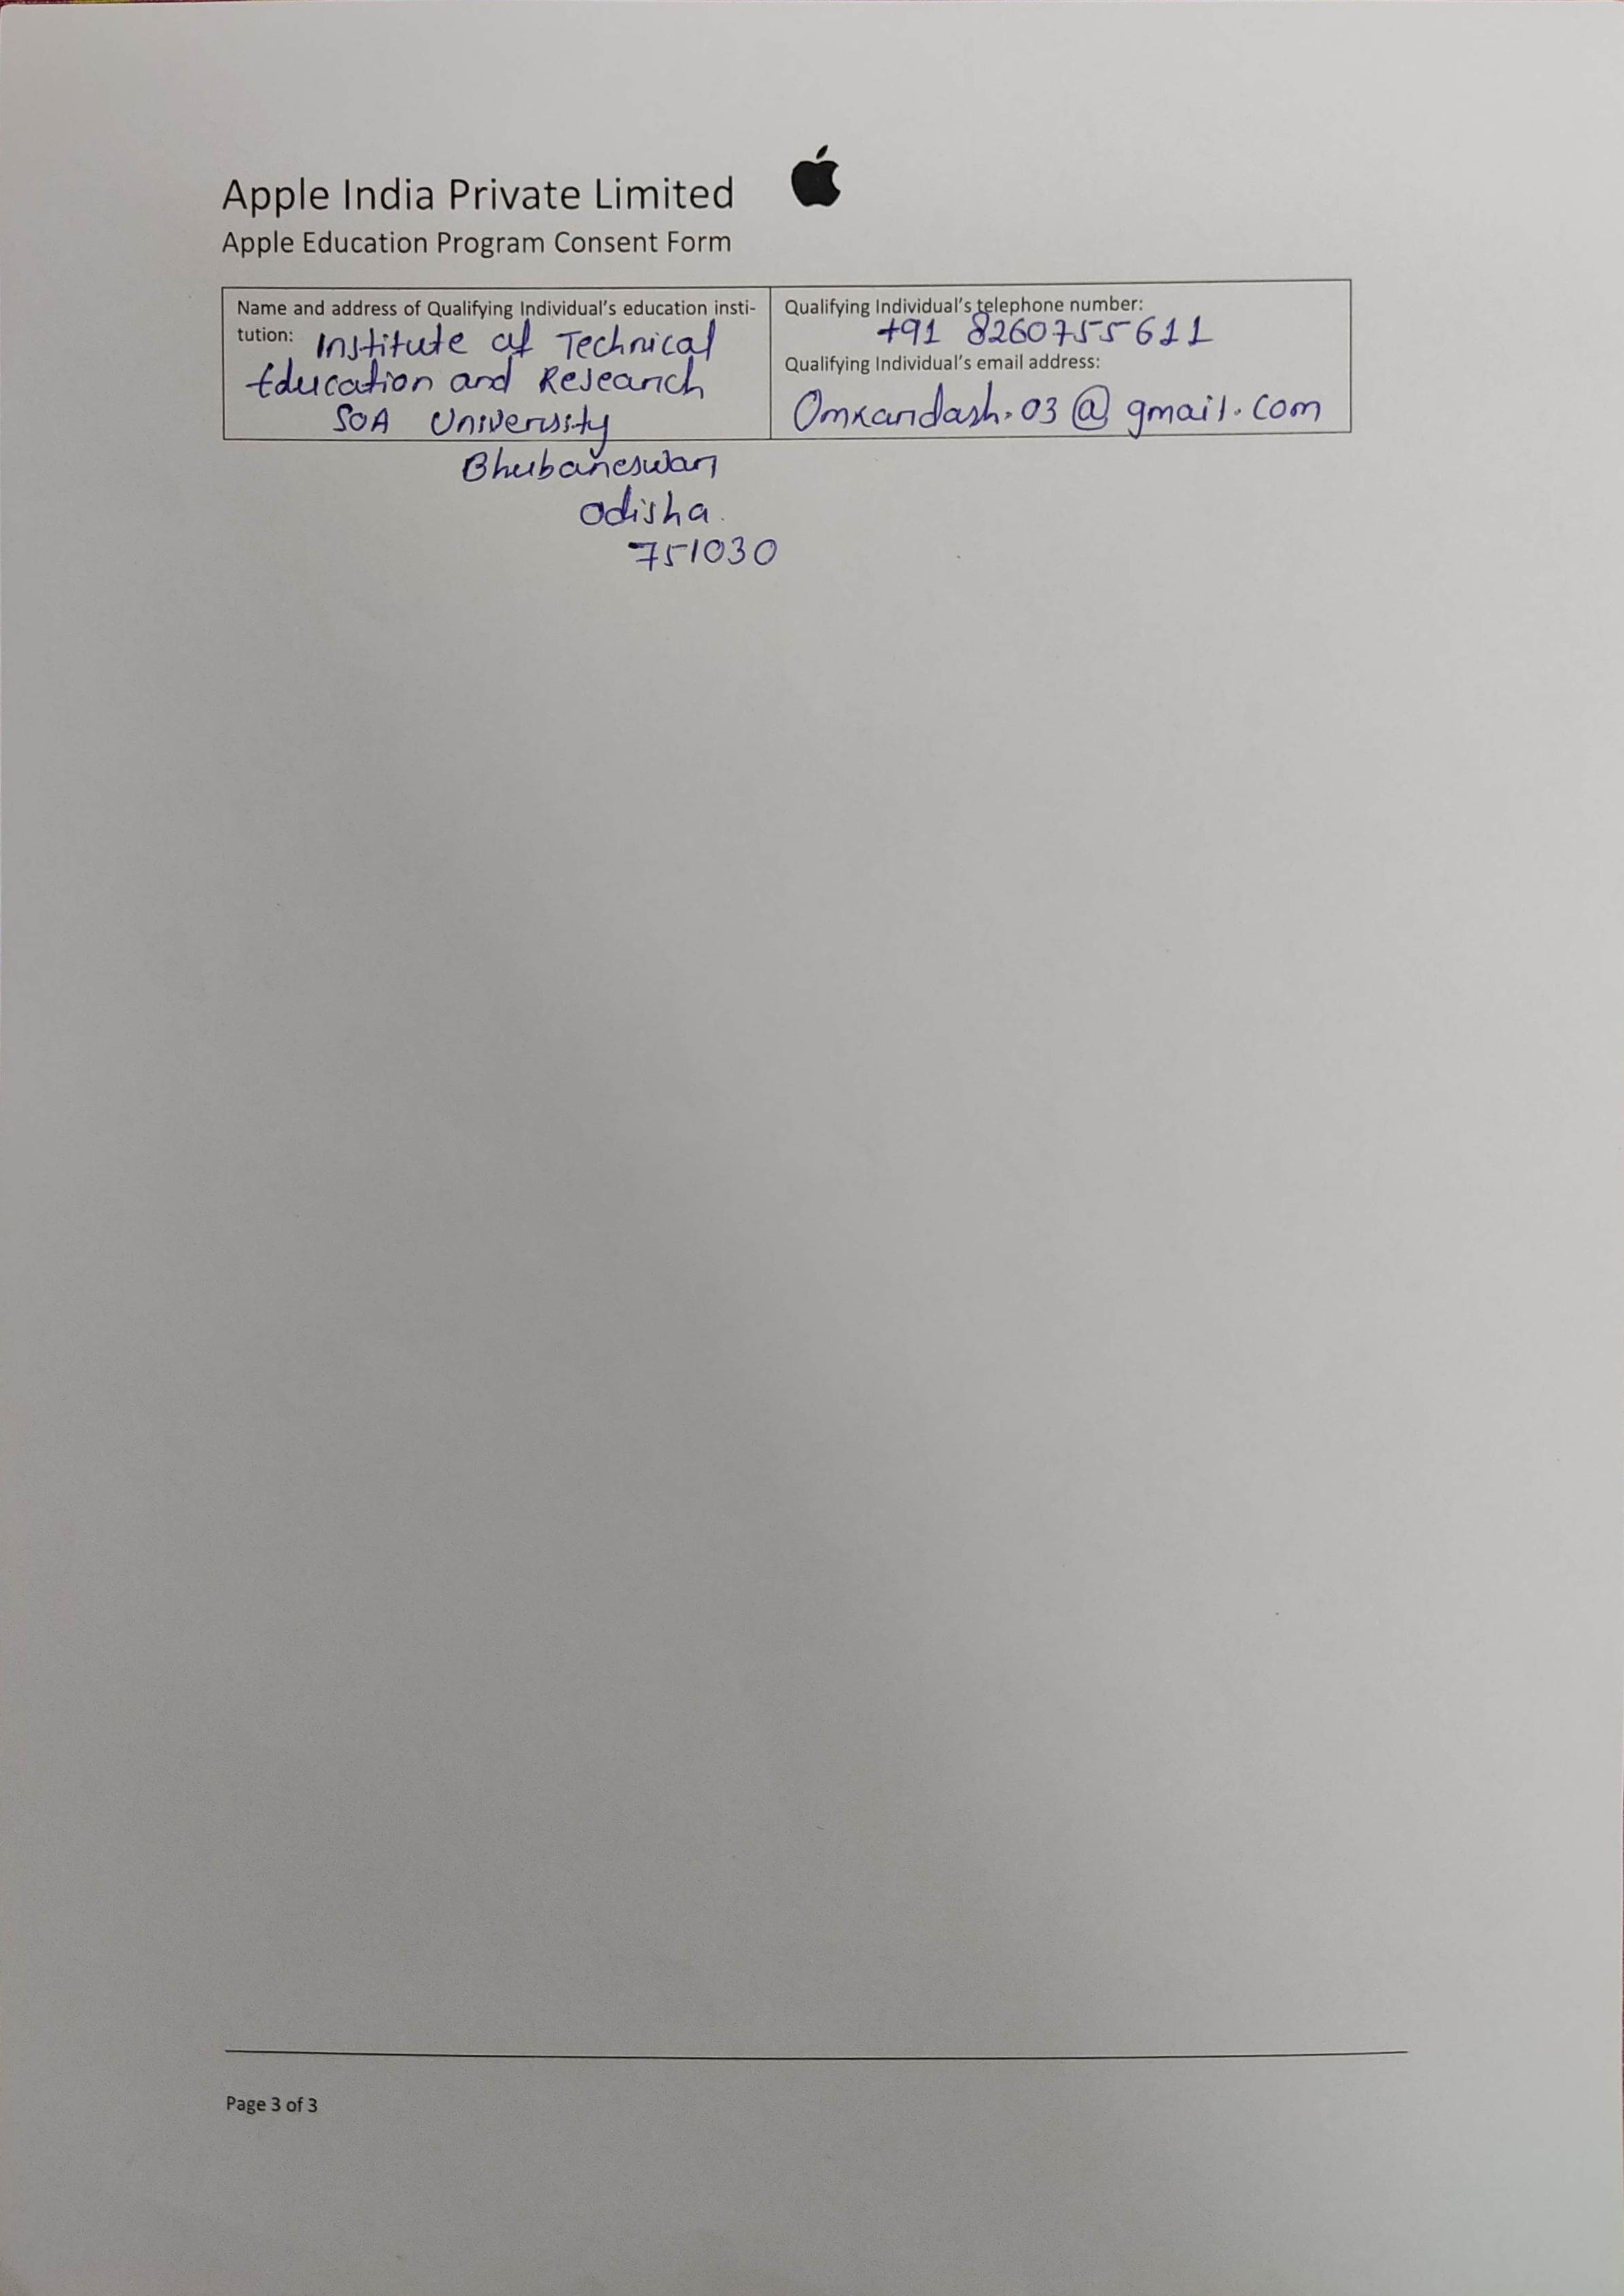 Apple India Private Limited
Apple Education Program Consent Form
Name and address of Qualifying Individual's education insti-
tution: Institute of Technical
Education and Research
SOA University
Bhubaneswar
Odisha.
751030
Qualifying Individual's telephone number:
+91 8260755611
Qualifying Individual's email address:
Omkardash.03@gmail.com
Page 3 of 3